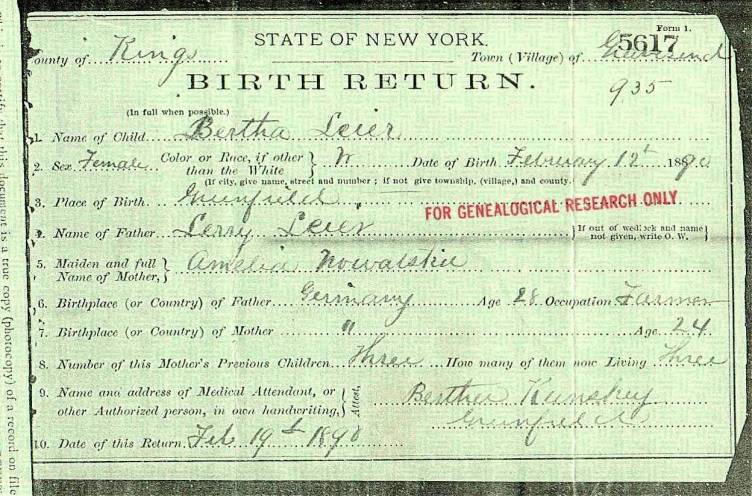 Form 1.
STATE OF NEW YORK.
5617
County of Kings Town (Village) of Gravesend
BIRTH RETURN.
935
(In full when possible.)
1. Name of Child Bertha Leier
2. Sex Female Color or Race, if other than the White } W Date of Birth February 12th 1890
(If city, give name, street and number; if not give township, (village,) and county.
3. Place of Birth Greenfield
FOR GENEALOGICAL RESEARCH ONLY
4. Name of Father Leier { If out of wedlock and name not given, write O. W. }
5. Maiden and full Name of Mother, } Amelia
6. Birthplace (or Country) of Father Germany Age 28 Occupation Farmer
7. Birthplace (or Country) of Mother " Age 24
8. Number of this Mother's Previous Children Three How many of them now Living Three
9. Name and address of Medical Attendant, or other Authorized person, in own handwriting, } Attest,
Greenfield
10. Date of this Return Feb 19th 1890
this document is a true copy (photocopy) of a record on file